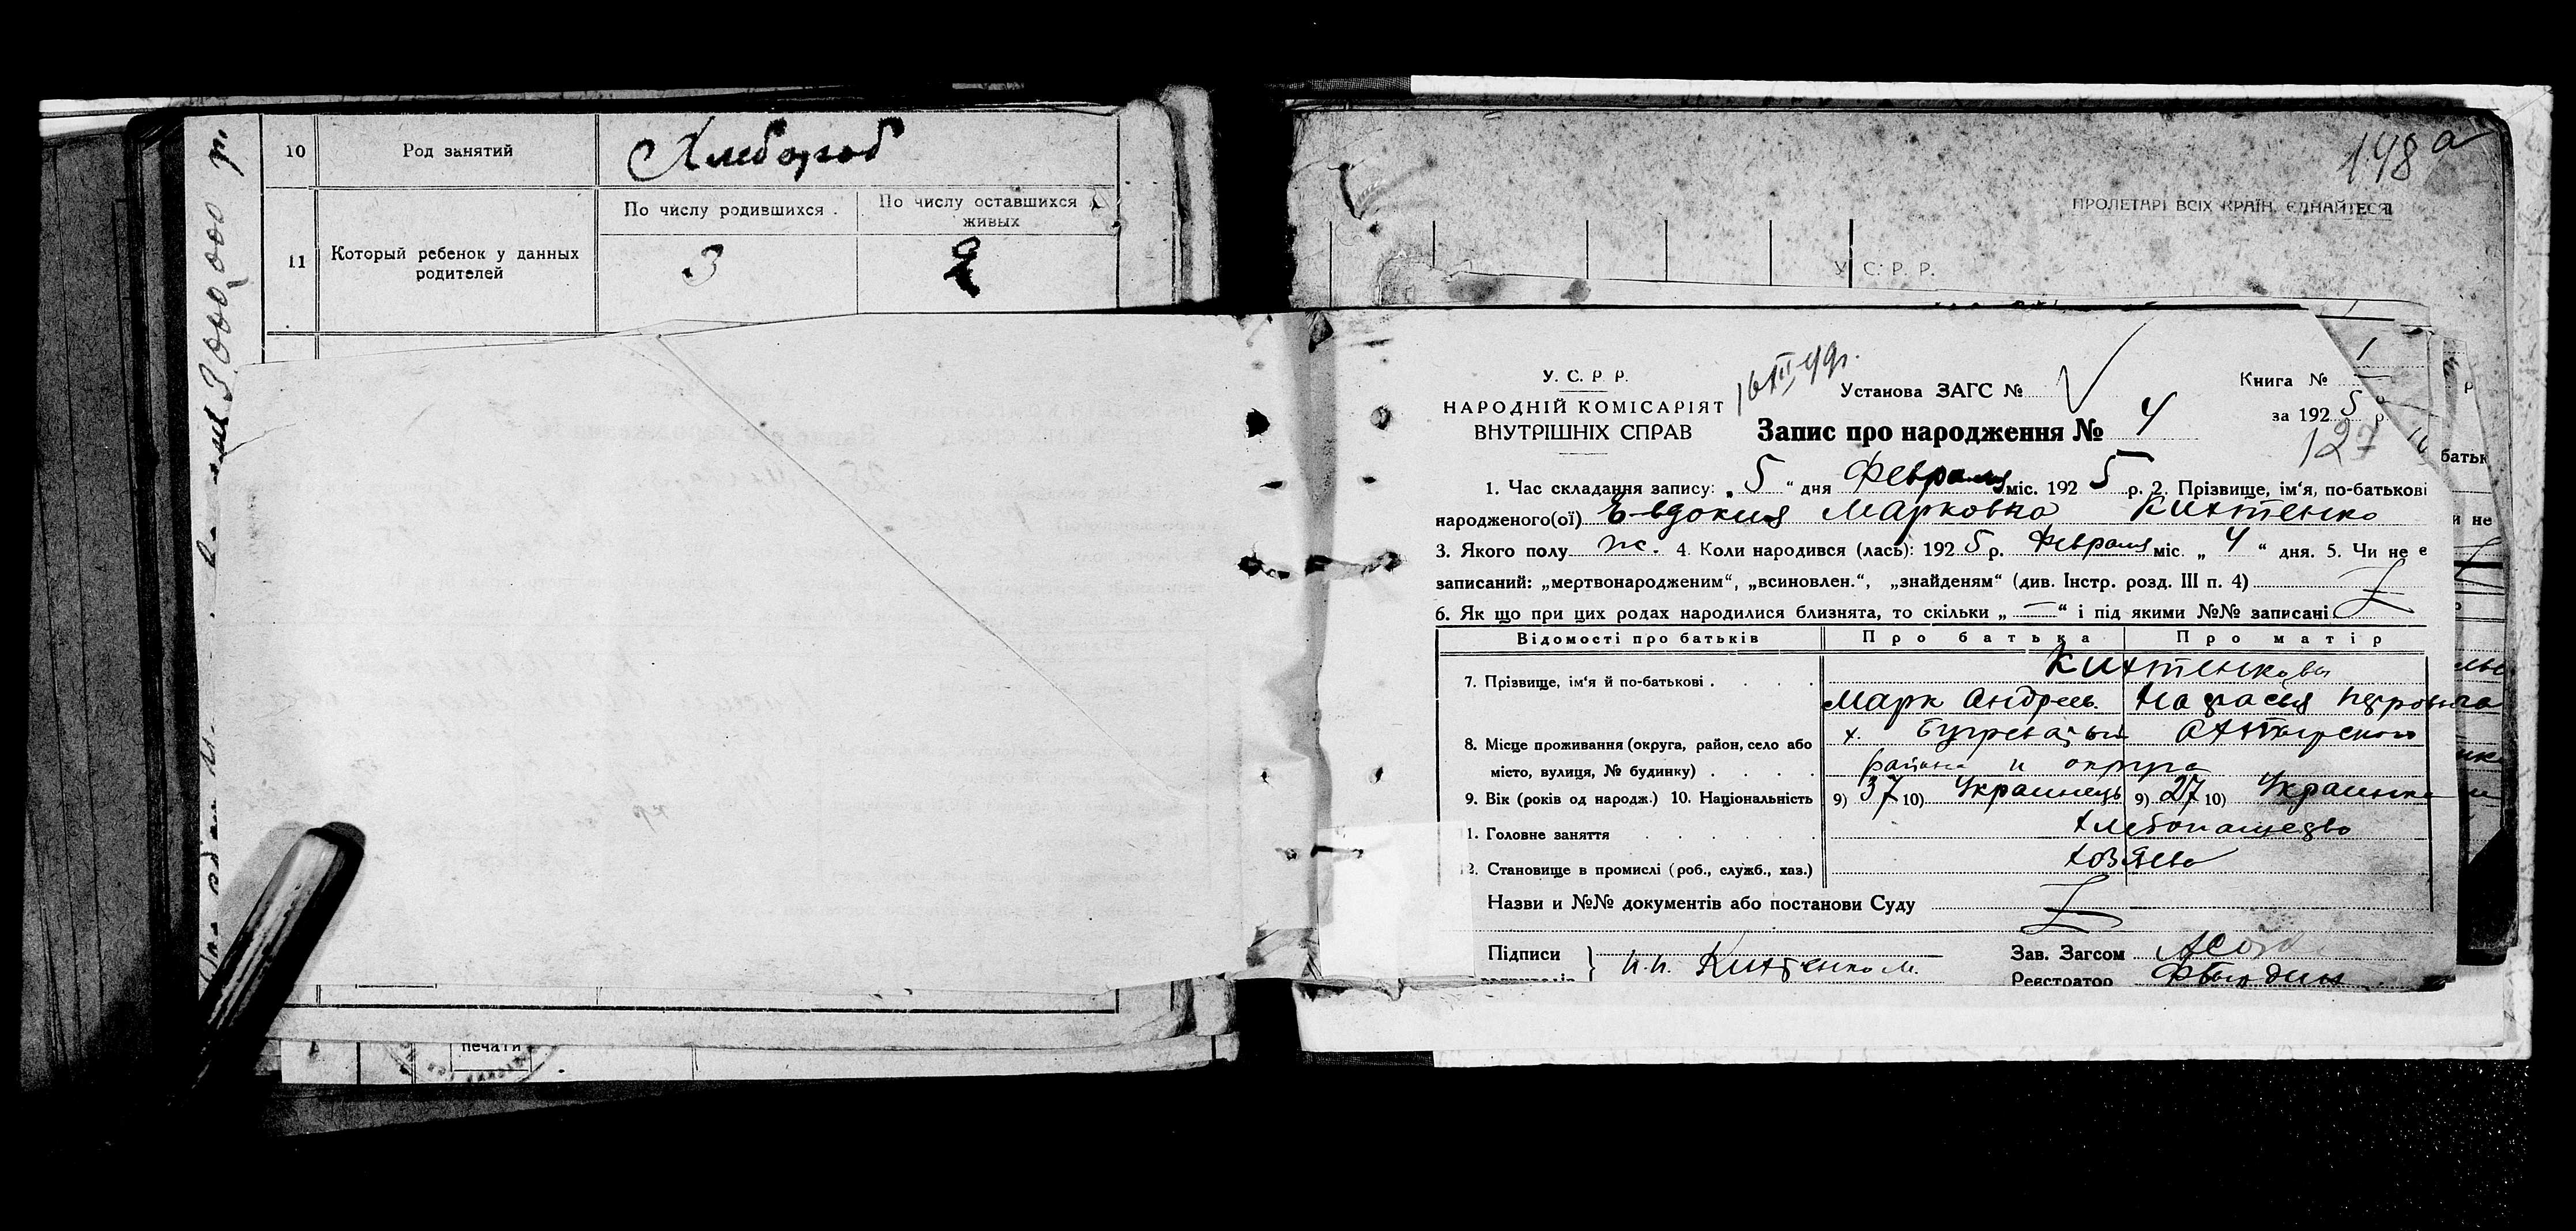 10 Род занятий Хлебороб
11 Который ребенок у данных родителей
По числу родившихся. По числу оставшихся живых
3 2
3000 000 р.
печати
148 а
ПРОЛЕТАРІ ВСІХ КРАЇН, ЄДНАЙТЕСЯ
У. С. Р. Р.
У. С. Р. Р.
НАРОДНІЙ КОМІСАРІЯТ
ВНУТРІШНІХ СПРАВ
Установа ЗАГС №
Книга № 1
за 1925 р.
127
Запис про народження № 4
1. Час складання запису: „5“ дня Февраля міс. 1925 р. 2. Прізвище, ім‘я, по-батькові
народженого(ої) Евдокия Марковна Кихтенко
3. Якого полу ж. 4. Коли народився (лась): 1925 р. Февраля міс. „4“ дня. 5. Чи не є
записаний: „мертвонародженим“, „всиновлен.“, „знайденям“ (див. Інстр. розд. III п. 4)
6. Як що при цих родах народилися близнята, то скільки „—“ і під якими №№ записані
Відомості про батьків Про батька Про матір
7. Прізвище, ім‘я й по-батькові . . . . Кихтенковы
Марк Андреев. Настасья Петровна
8. Місце проживання (округа, район, село або х. Ахтырского
місто, вулиця, № будинку) . . . . района и округа
9. Вік (років од народж.) 10. Національність 9) 37 10) Украинець 9) 27 10) Украинка
11. Головне заняття . . . . . . Хлебопашество
12. Становище в промислі (роб., служб., хаз.) хозяева
Назви и №№ документів або постанови Суду
Підписи Кихтенко М.
Зав. Загсом
Реєстратор
батьк
и не